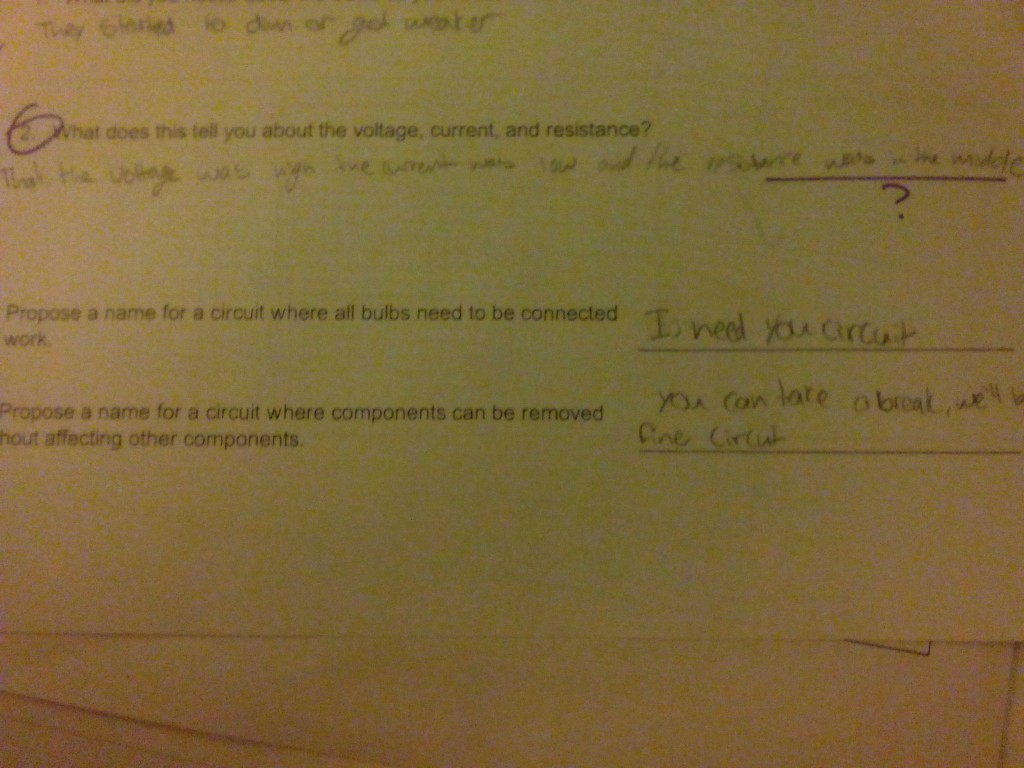 They started to dim or got weaker
2. What does this tell you about the voltage, current, and resistance?
That the voltage was high the current was low and the resistance was in the middle
?
Propose a name for a circuit where all bulbs need to be connected
work.
I need you circuit
Propose a name for a circuit where components can be removed
hout affecting other components.
you can take a break, we'll b
fine circut